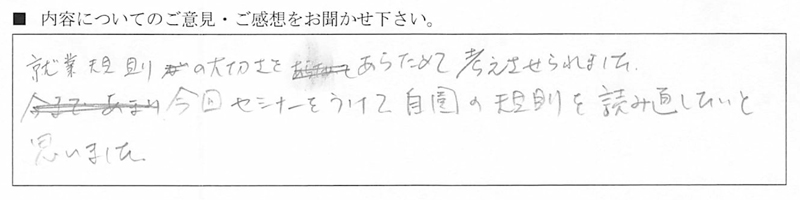 ■ 内容についてのご意見・ご感想をお聞かせ下さい。
就業規則の大切さをあらためて考えさせられました。
今回セミナーをうけて自園の規則を読み直したいと
思いました。